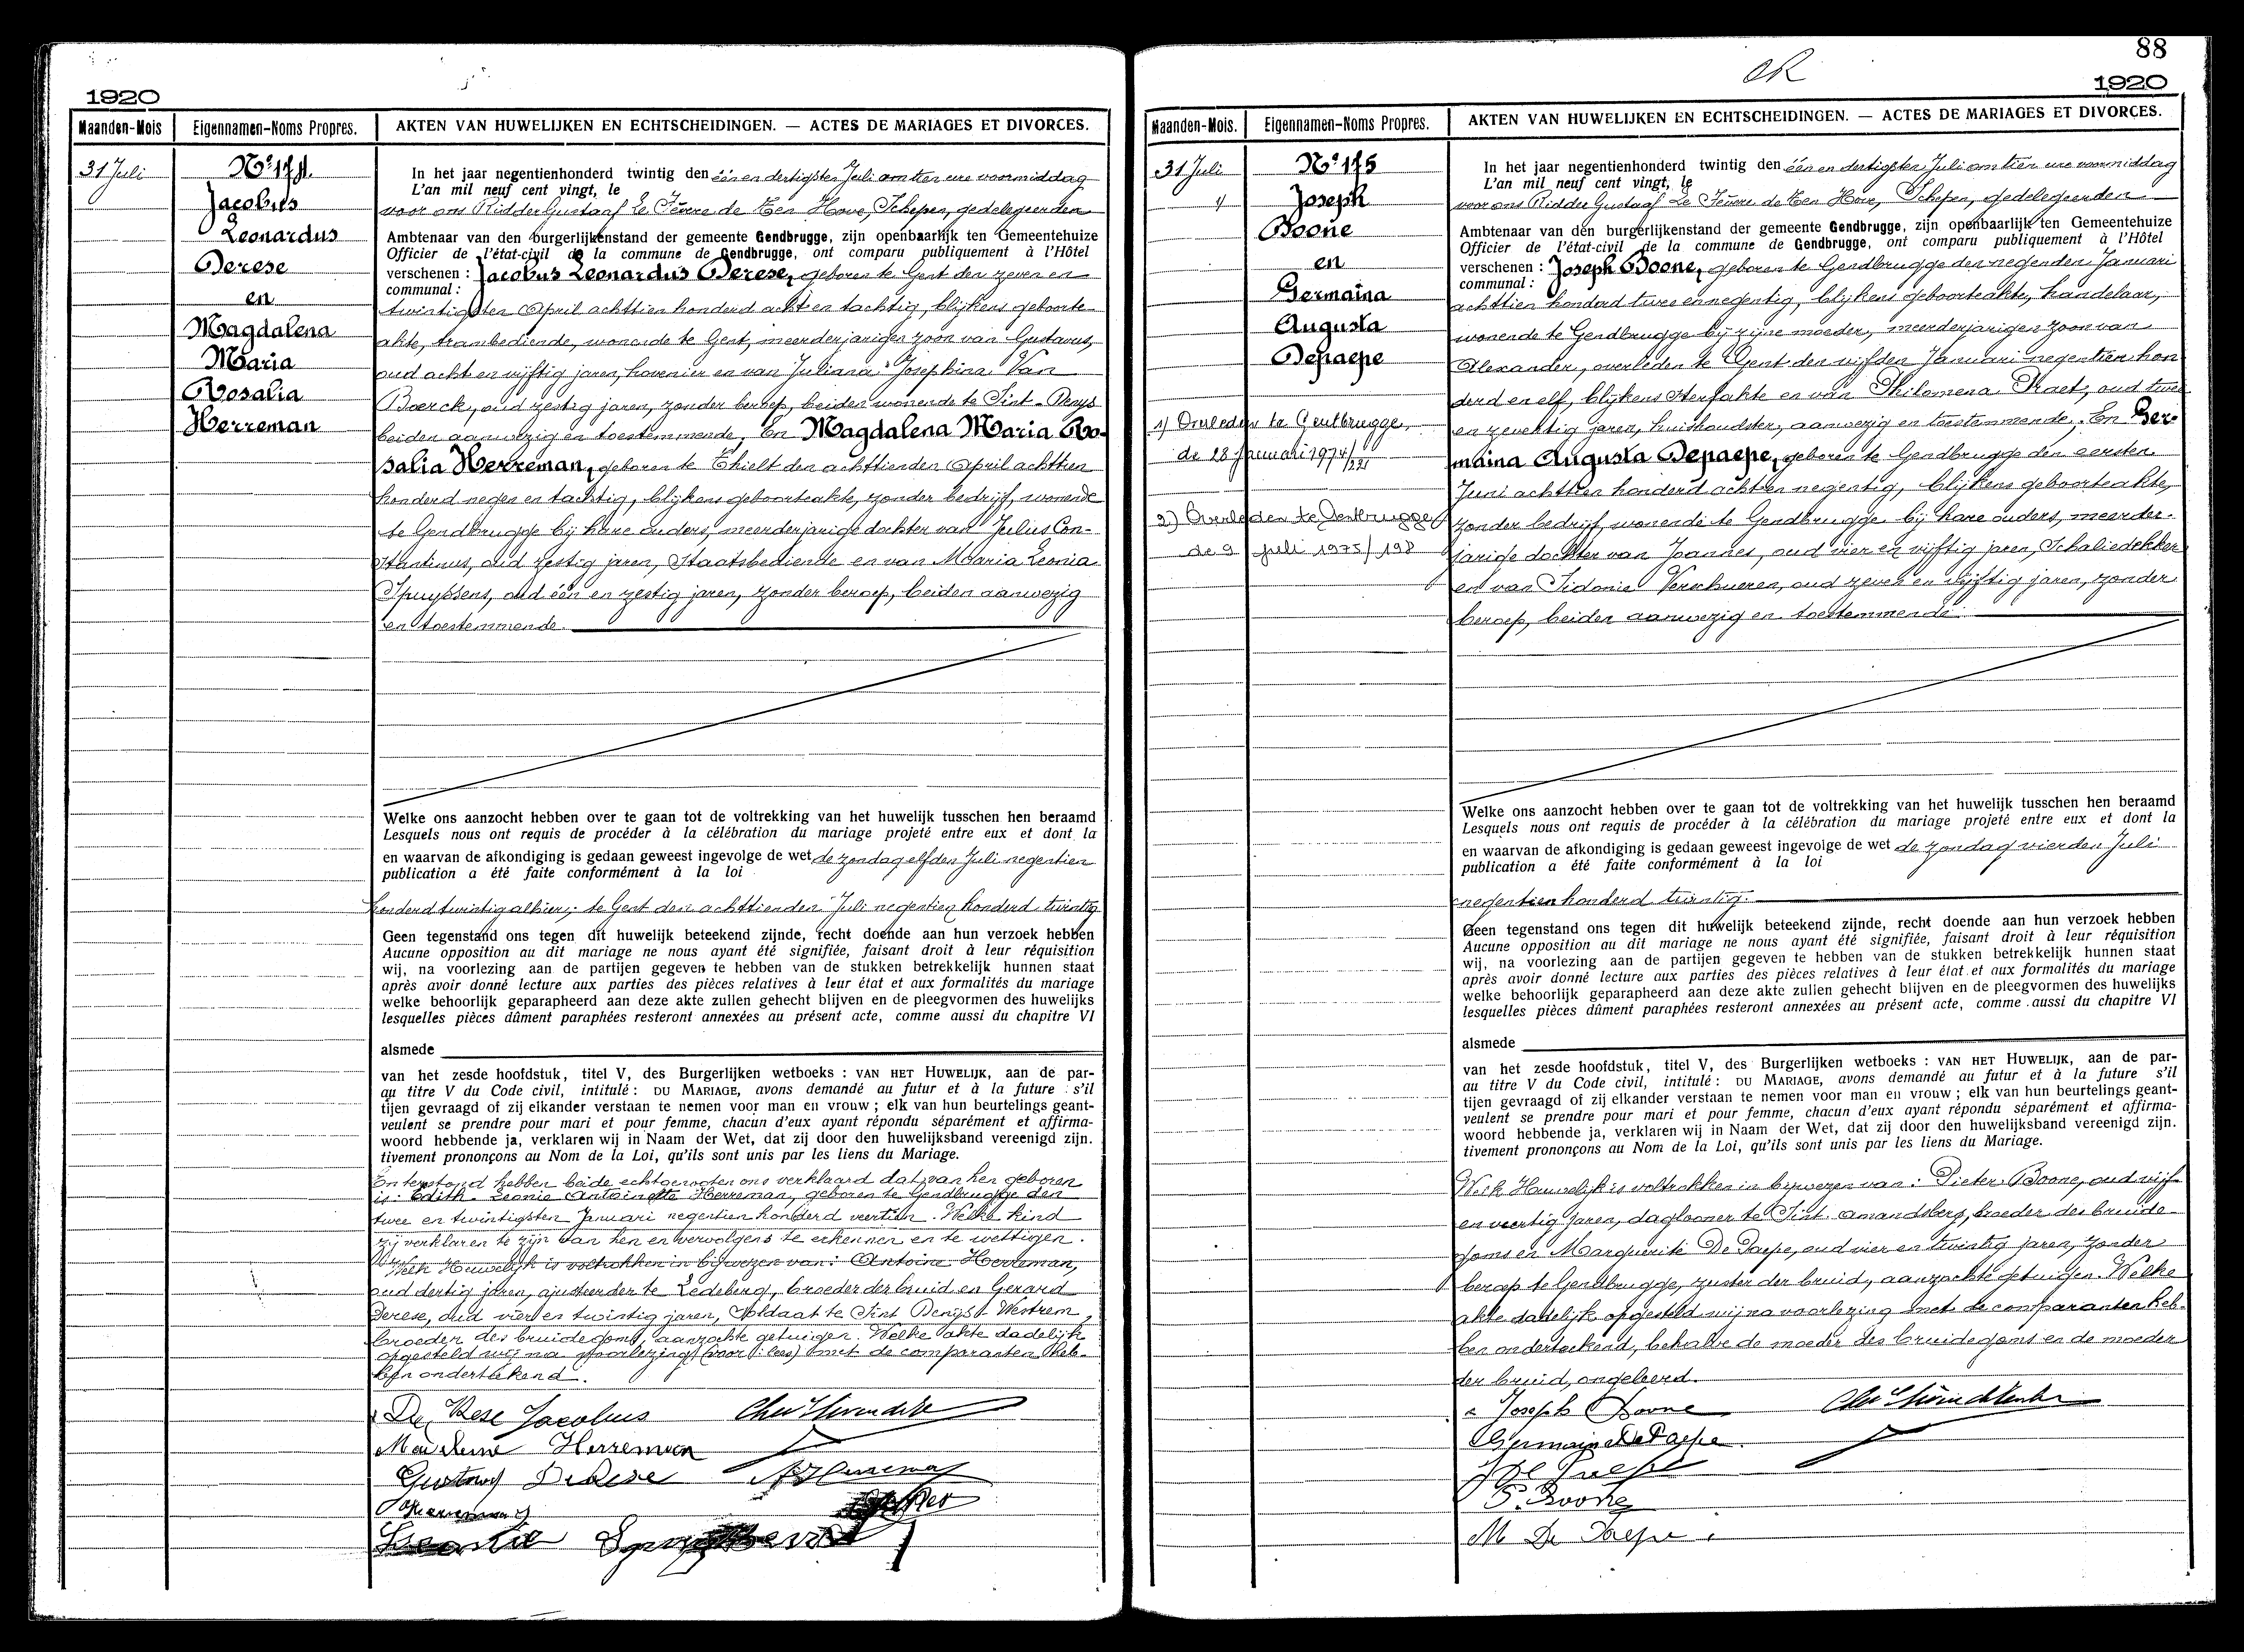 1920
Maanden-Mois
Eigennamen-Noms Propres.
AKTEN VAN HUWELIJKEN EN ECHTSCHEIDINGEN. — ACTES DE MARIAGES ET DIVORCES.
31 Juli
N° 174.
Jacobus
Leonardus
Derese
en
Magdalena
Maria
Rosalia
Herreman
In het jaar negentienhonderd twintig den één en dertigsten Juli om tien ure voormiddag
L'an mil neuf cent vingt, le
voor ons Ridder Gustaaf Le Fèvere de Ten Hove, Schepen, gedelegeerden
Ambtenaar van den burgerlijkenstand der gemeente Gendbrugge, zijn openbaarlijk ten Gemeentehuize
Officier de l'état-civil de la commune de Gendbrugge, ont comparu publiquement à l'Hôtel
verschenen : Jacobus Leonardus Derese, geboren te Gent den zeven en
communal :
twintigsten April achttien honderd acht en tachtig, blijkens geboorte-
akte, trambediende, wonende te Gent, meerderjarigen zoon van Gustavus,
oud acht en vijftig jaren, hovenier en van Juliana Josephina Van
Boerck, oud zestig jaren, zonder beroep, beiden wonende te Sint-Denys
beiden aanwezig en toestemmende, En Magdalena Maria Ro-
salia Herreman, geboren te Thielt den achttienden April achttien
honderd negen en tachtig, blijkens geboorteakte, zonder bedrijf, wonende
te Gendbrugge bij hare ouders, meerderjarige dochter van Julius Con-
stantinus, oud zestig jaren, Staatsbediende en van Maria Leonia
Spuyssens, oud één en zestig jaren, zonder beroep, beiden aanwezig
en toestemmende.
Welke ons aanzocht hebben over te gaan tot de voltrekking van het huwelijk tusschen hen beraamd
Lesquels nous ont requis de procéder à la célébration du mariage projeté entre eux et dont la
en waarvan de afkondiging is gedaan geweest ingevolge de wet de zondag elfden Juli negentien
publication a été faite conformément à la loi
honderd twintig alhier; te Gent den achttienden Juli negentien honderd twintig
Geen tegenstand ons tegen dit huwelijk beteekend zijnde, recht doende aan hun verzoek hebben
Aucune opposition au dit mariage ne nous ayant été signifiée, faisant droit à leur réquisition
wij, na voorlezing aan de partijen gegeven te hebben van de stukken betrekkelijk hunnen staat
après avoir donné lecture aux parties des pièces relatives à leur état et aux formalités du mariage
welke behoorlijk geparapheerd aan deze akte zullen gehecht blijven en de pleegvormen des huwelijks
lesquelles pièces dûment paraphées resteront annexées au présent acte, comme aussi du chapitre VI
alsmede
van het zesde hoofdstuk, titel V, des Burgerlijken wetboeks : VAN HET HUWELIJK, aan de par-
qu titre V du Code civil, intitulé : DU MARIAGE, avons demandé au futur et à la future s'il
tijen gevraagd of zij elkander verstaan te nemen voor man en vrouw ; elk van hun beurtelings geant-
veulent se prendre pour mari et pour femme, chacun d'eux ayant répondu séparément et affirma-
woord hebbende ja, verklaren wij in Naam der Wet, dat zij door den huwelijksband vereenigd zijn.
tivement prononçons au Nom de la Loi, qu'ils sont unis par les liens du Mariage.
En terstond hebben beide echtgenoten ons verklaard dat van hen geboren
is: Edith Leonie Antoinette Herreman, geboren te Gendbrugge den
twee en twintigsten Januari negentien honderd veertien. Welk kind
zij verklaren te zijn van hen en vervolgens te erkennen en te wettigen.
Welk Huwelijk is voltrokken in bijwezen van: Antoine Herreman,
oud dertig jaren, ajusteerder te Ledeberg, broeder der bruid en Gerard
Derese, oud vier en twintig jaren, Soldaat te Sint Denijs Westrem,
broeder des bruidegoms, aanzochte getuigen. Welke akte dadelijk
opgesteld wij na voorlezing (voor: lees) met de comparanten heb-
ben onderteekend.
De Rese Jacobus
Madeleine Herreman
Gustaaf De Rese
Herreman
Leonie
88
1920
Maanden-Mois.
Eigennamen-Noms Propres.
AKTEN VAN HUWELIJKEN EN ECHTSCHEIDINGEN. — ACTES DE MARIAGES ET DIVORCES.
31 Juli
N° 175
Joseph
Boone
en
Germaina
Augusta
Depaepe
1) Overleden te Gentbrugge,
de 28 januari 1974/221
2) Overleden te Gentbrugge
de 9 juli 1975/198
In het jaar negentienhonderd twintig den één en dertigsten Juli om tien ure voormiddag
L'an mil neuf cent vingt, le
voor ons Ridder Gustaaf Le Fèvere de Ten Hove, Schepen, gedelegeerden
Ambtenaar van den burgerlijkenstand der gemeente Gendbrugge, zijn openbaarlijk ten Gemeentehuize
Officier de l'état-civil de la commune de Gendbrugge, ont comparu publiquement à l'Hôtel
verschenen : Joseph Boone, geboren te Gendbrugge den negenden Januari
communal :
achttien honderd twee en negentig, blijkens geboorteakte, handelaar,
wonende te Gendbrugge bij zijne moeder, meerderjarigen zoon van
Alexander, overleden te Gent den vijfden Januari negentien hon
derd en elf, blijkens sterfakte en van Philomena Praet, oud twee
en zeventig jaren, huishoudster, aanwezig en toestemmende, En Ger-
maina Augusta Depaepe, geboren te Gendbrugge den eersten
Juni achttien honderd acht en negentig, blijkens geboorteakte,
zonder bedrijf, wonende te Gendbrugge bij hare ouders, meerder-
jarige dochter van Joannes, oud vier en vijftig jaren, Schaliedekker
en van Sidonie Verschueren, oud zeven en vijftig jaren, zonder
beroep, beiden aanwezig en toestemmende
Welke ons aanzocht hebben over te gaan tot de voltrekking van het huwelijk tusschen hen beraamd
Lesquels nous ont requis de procéder à la célébration du mariage projeté entre eux et dont la
en waarvan de afkondiging is gedaan geweest ingevolge de wet de zondag vierden Juli
publication a été faite conformément à la loi
negentien honderd twintig.
Geen tegenstand ons tegen dit huwelijk beteekend zijnde, recht doende aan hun verzoek hebben
Aucune opposition au dit mariage ne nous ayant été signifiée, faisant droit à leur réquisition
wij, na voorlezing aan de partijen gegeven te hebben van de stukken betrekkelijk hunnen staat
après avoir donné lecture aux parties des pièces relatives à leur état et aux formalités du mariage
welke behoorlijk geparapheerd aan deze akte zullen gehecht blijven en de pleegvormen des huwelijks
lesquelles pièces dûment paraphées resteront annexées au présent acte, comme aussi du chapitre VI
alsmede
van het zesde hoofdstuk, titel V, des Burgerlijken wetboeks : VAN HET HUWELIJK, aan de par-
au titre V du Code civil, intitulé : DU MARIAGE, avons demandé au futur et à la future s'il
tijen gevraagd of zij elkander verstaan te nemen voor man en vrouw ; elk van hun beurtelings geant-
veulent se prendre pour mari et pour femme, chacun d'eux ayant répondu séparément et affirma-
woord hebbende ja, verklaren wij in Naam der Wet, dat zij door den huwelijksband vereenigd zijn.
tivement prononçons au Nom de la Loi, qu'ils sont unis par les liens du Mariage.
Welk Huwelijk is voltrokken in bijwezen van: Pieter Boone, oud vijf
en veertig jaren, daglooner te Sint Amandsberg, broeder des bruide-
goms en Marguerite De Paepe, oud vier en twintig jaren, zonder
beroep te Gendbrugge, zuster der bruid, aanzochte getuigen. Welke
akte dadelijk opgesteld wij na voorlezing met de comparanten heb-
ben onderteekend, behalve de moeder des bruidegoms en de moeder
der bruid, ongeleerd.
Joseph Boone
Germaine De Paepe
De Paepe
P. Boone
M De Paepe